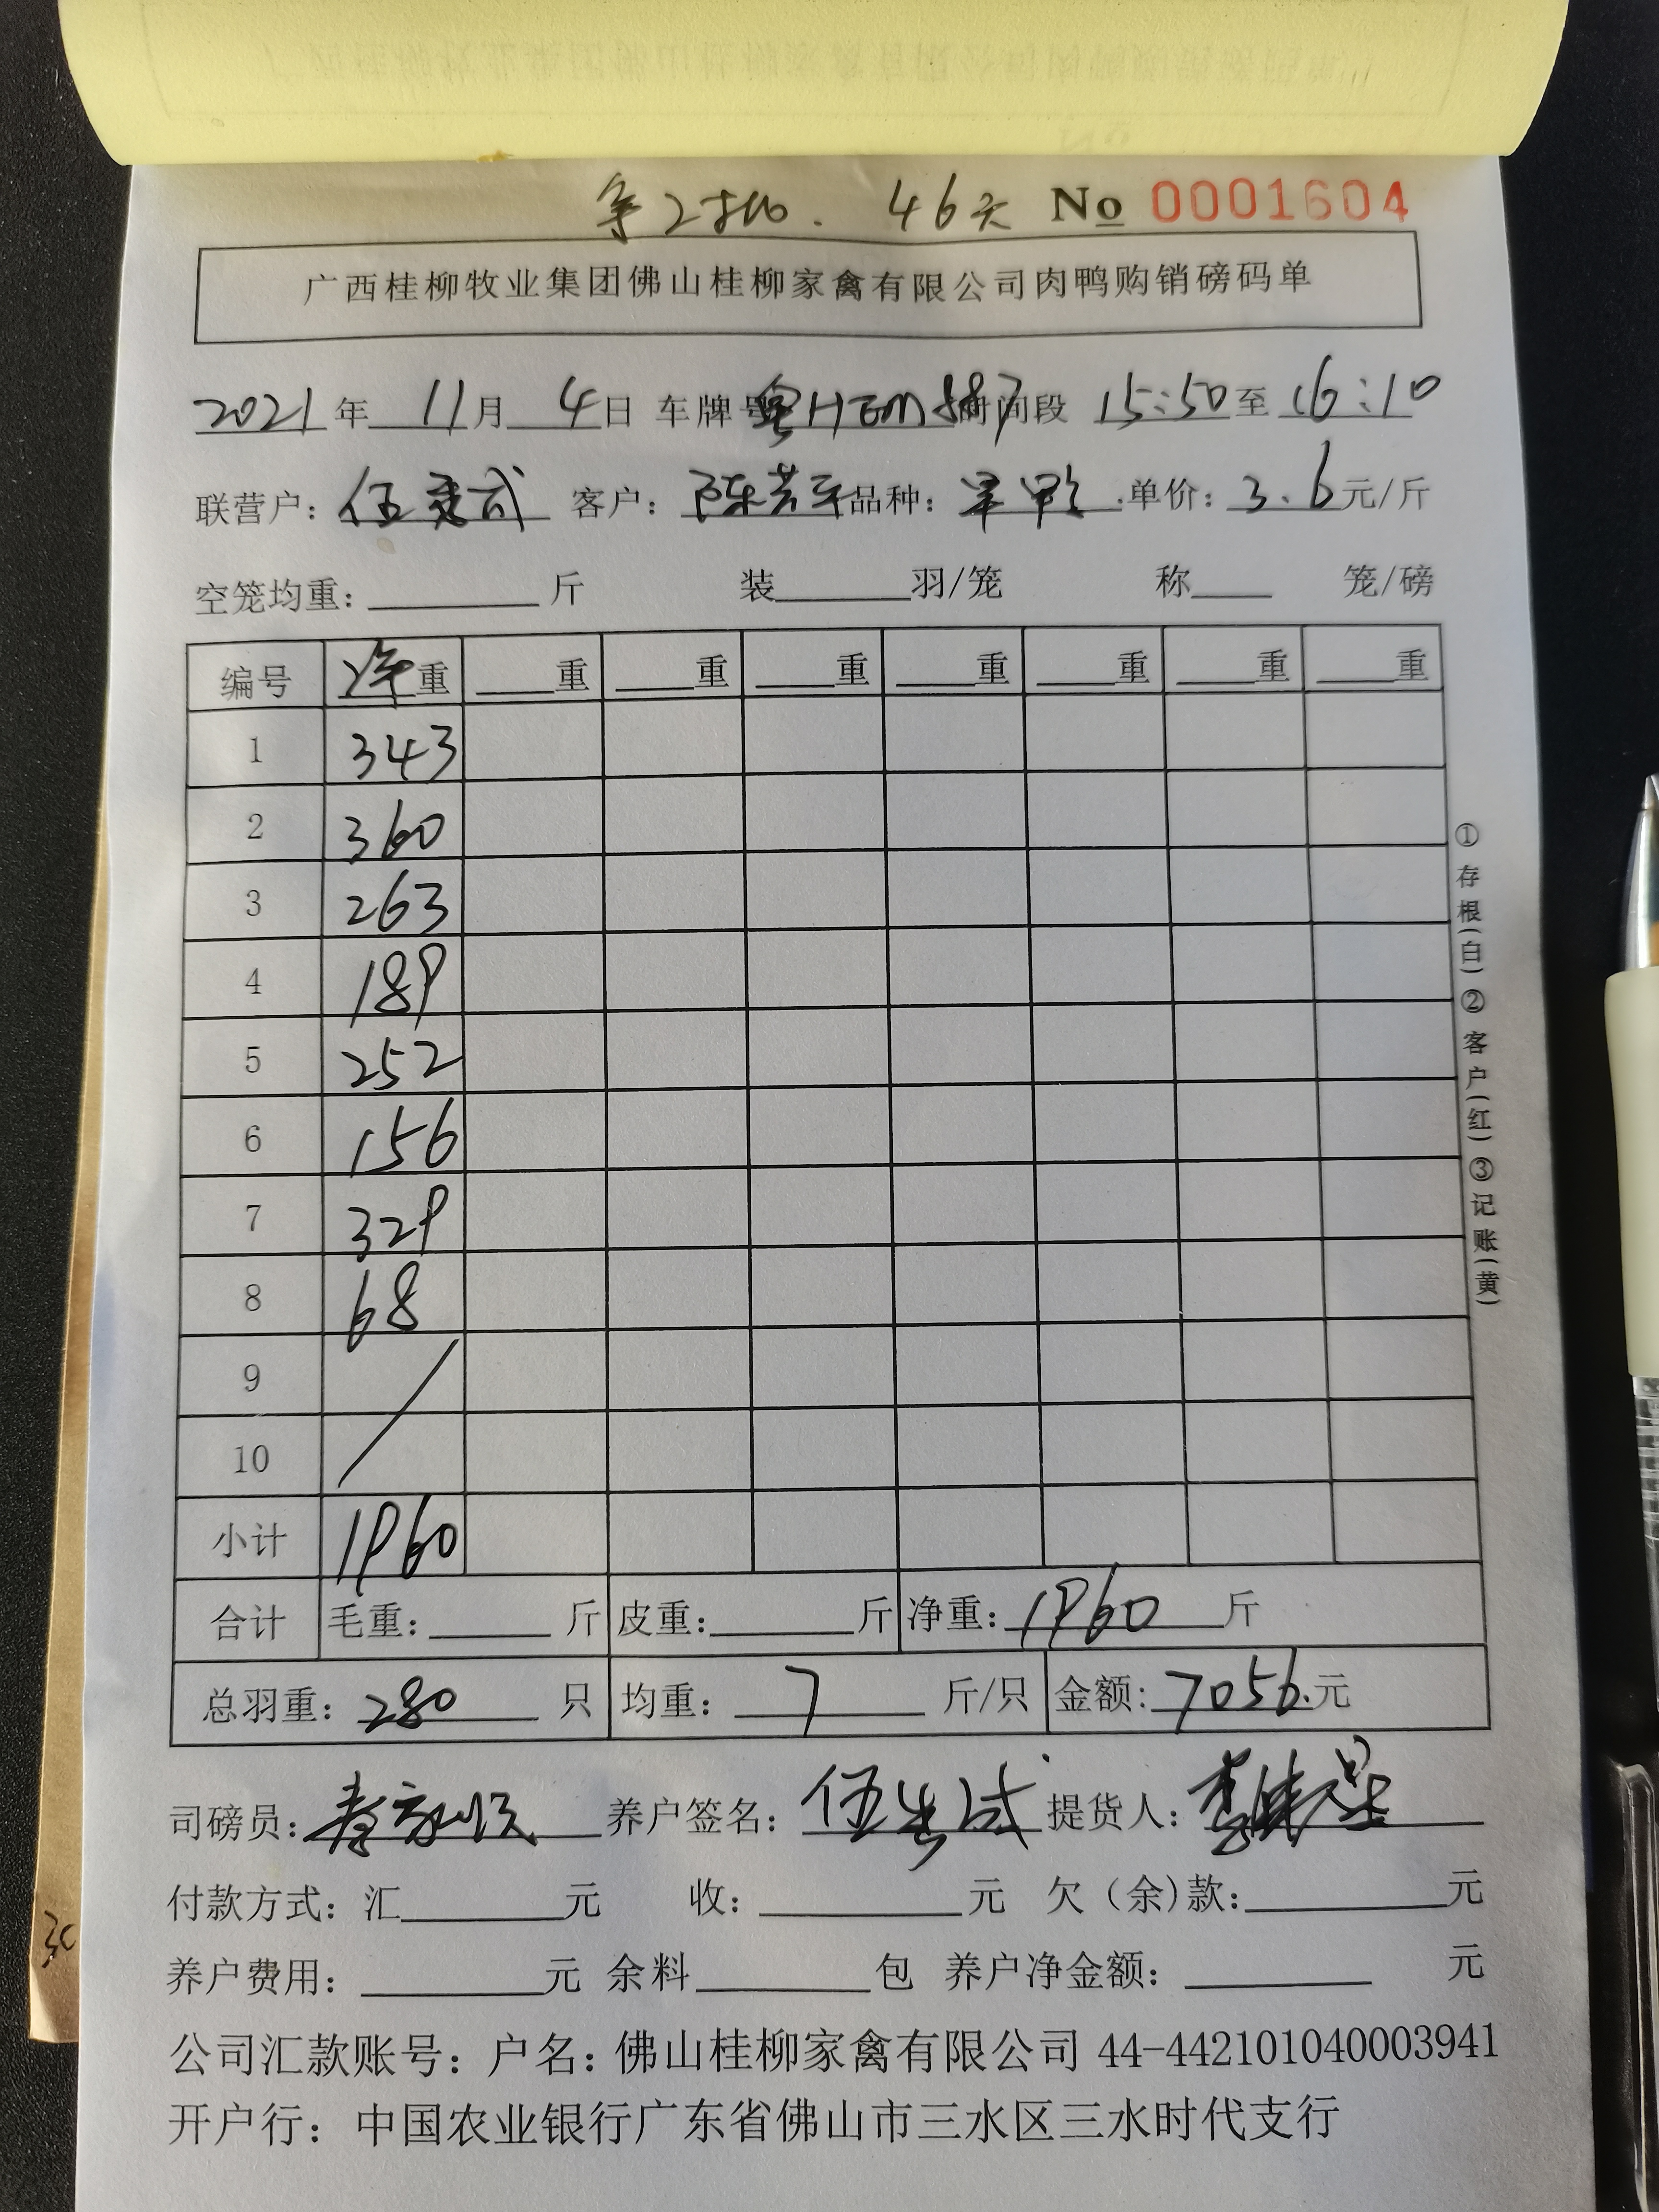 46天 No 0001604
广西桂柳牧业集团佛山桂柳家禽有限公司肉鸭购销磅码单
2021年 11月 4日 车牌号 时间段 15:50至16:10
联营户: 客户: 品种: 单价: 3.6元/斤
空笼均重: 斤 装 羽/笼 称 笼/磅
编号 净重 重 重 重 重 重 重 重
1 343
2 360
3 263
4 189
5 252
6 156
7 329
8 68
9
10
小计 1960
合计 毛重: 斤 皮重: 斤 净重: 1960 斤
总羽重: 280 只 均重: 7 斤/只 金额: 7056.元
司磅员: 养户签名: 提货人:
付款方式: 汇 元 收: 元 欠(余)款: 元
养户费用: 元 余料 包 养户净金额: 元
公司汇款账号: 户名: 佛山桂柳家禽有限公司 44-442101040003941
开户行: 中国农业银行广东省佛山市三水区三水时代支行
①存根(白)②客户(红)③记账(黄)